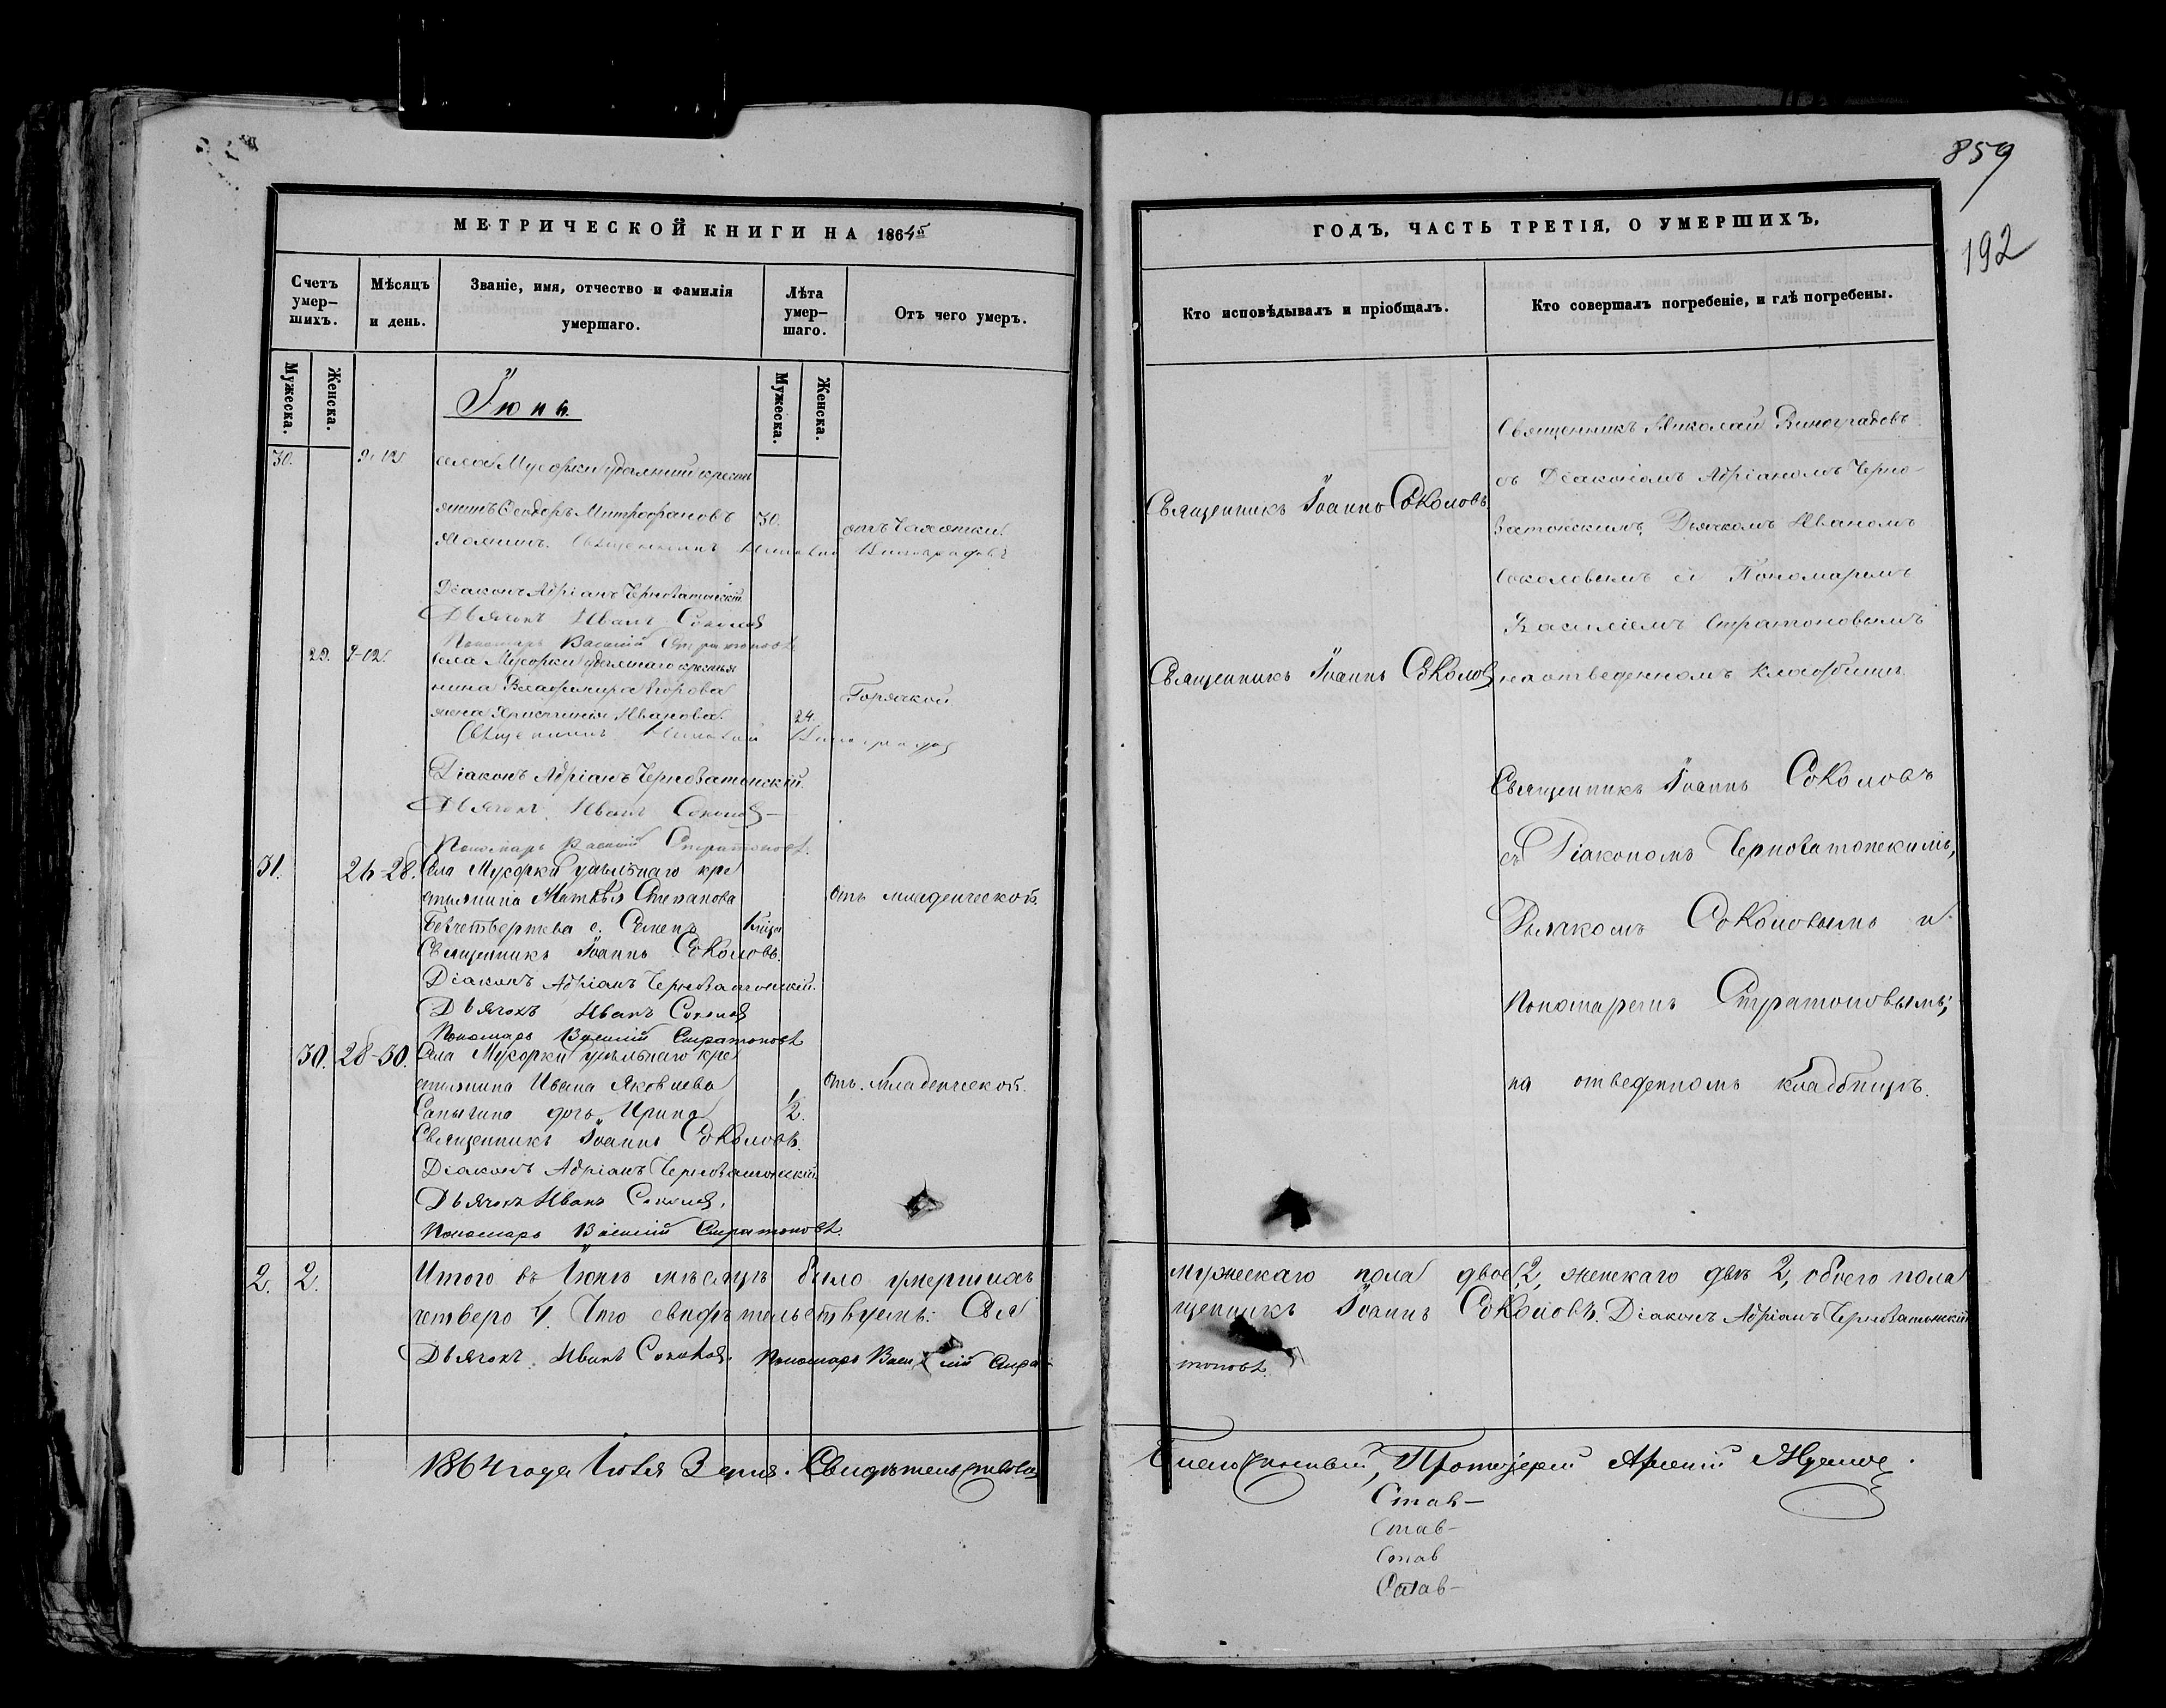 859
192
МЕТРИЧЕСКОЙ КНИГИ НА 1864й
Счетъ умер-шихъ.
Мѣсяцъ и день.
Званіе, имя, отчество и фамилія умершаго.
Лѣта умер-шаго.
Отъ чего умеръ.
Мужеска.
Женска.
Мужеска.
Женска.
Іюнь.
30. 9-12 села Мусорки удѣльный кресть
янинъ Ѳеодоръ Митрофановъ 30. отъ Чахотки.
Священникъ Николай Виноградовъ
Діаконъ Адріанъ Черноватонскій
Дьячокъ Иванъ Соколов
Пономарь Василій Стратоновъ
29. 9-12. Села Мусорки удѣльнаго кресть
нина Егорова Горячкой
жена Христинія Иванова 24.
Священникъ Николай Виноградов
Діаконъ Адріанъ Черноватонскій.
Дьячокъ Иванъ Соколов
Пономарь Василій Стратоновъ.
31. 26-28. Села Мусорки удѣльнаго кре
стьянина Матвѣя Степанова отъ младенческой.
Безчетвертева с. Семенъ
Священникъ Іоаннъ Соколовъ.
Діаконъ Адріанъ Черноватонскій.
Дьячокъ Иванъ Соколов
Пономарь Василій Стратоновъ
30. 28-30. Села Мусорки удѣльнаго кре
стьянина Ивана Яковлева отъ младенческой.
Сапыгина дочь Ирина 1/2.
Священникъ Іоаннъ Соколовъ.
Діаконъ Адріанъ Черноватонскій
Дьячокъ Иванъ Соколов.
Пономарь Василій Стратоновъ.
2. 2. Итого въ Іюнѣ мѣсяцѣ было умершихъ
четверо 4. Что свидѣтельствуемъ: Свя
Дьячокъ Иванъ Соколов. Пономарь Василій Стра-
1864 года Іюля 3 дня. Свидѣтельствова
ГОДЪ, ЧАСТЬ ТРЕТІЯ, О УМЕРШИХЪ,
Кто исповѣдывалъ и пріобщалъ.
Кто совершалъ погребеніе, и гдѣ погребены.
Священникъ Іоаннъ Соколовъ
Священникъ Іоаннъ Соколов
Священникъ Николай Виноградовъ
съ Діакономъ Адріаномъ Черно-
ватонскимъ, Дьячкомъ Иваномъ
Соколовымъ и Пономаремъ
Василіемъ Стратоновымъ
на отведенномъ кладбищѣ.
Священникъ Іоаннъ Соколовъ
съ Діакономъ Черноватонскимъ,
Дьячкомъ Соколовымъ и
Пономаремъ Стратоновымъ;
на отведенномъ кладбищѣ.
мужескаго пола двое, 2, женскаго двѣ 2, обоего пола
щенникъ Іоаннъ Соколовъ. Діаконъ Адріанъ Черноватонскій
тоновъ.
Благочинный, Протоіерей
Став-
Став-
Став
Став-